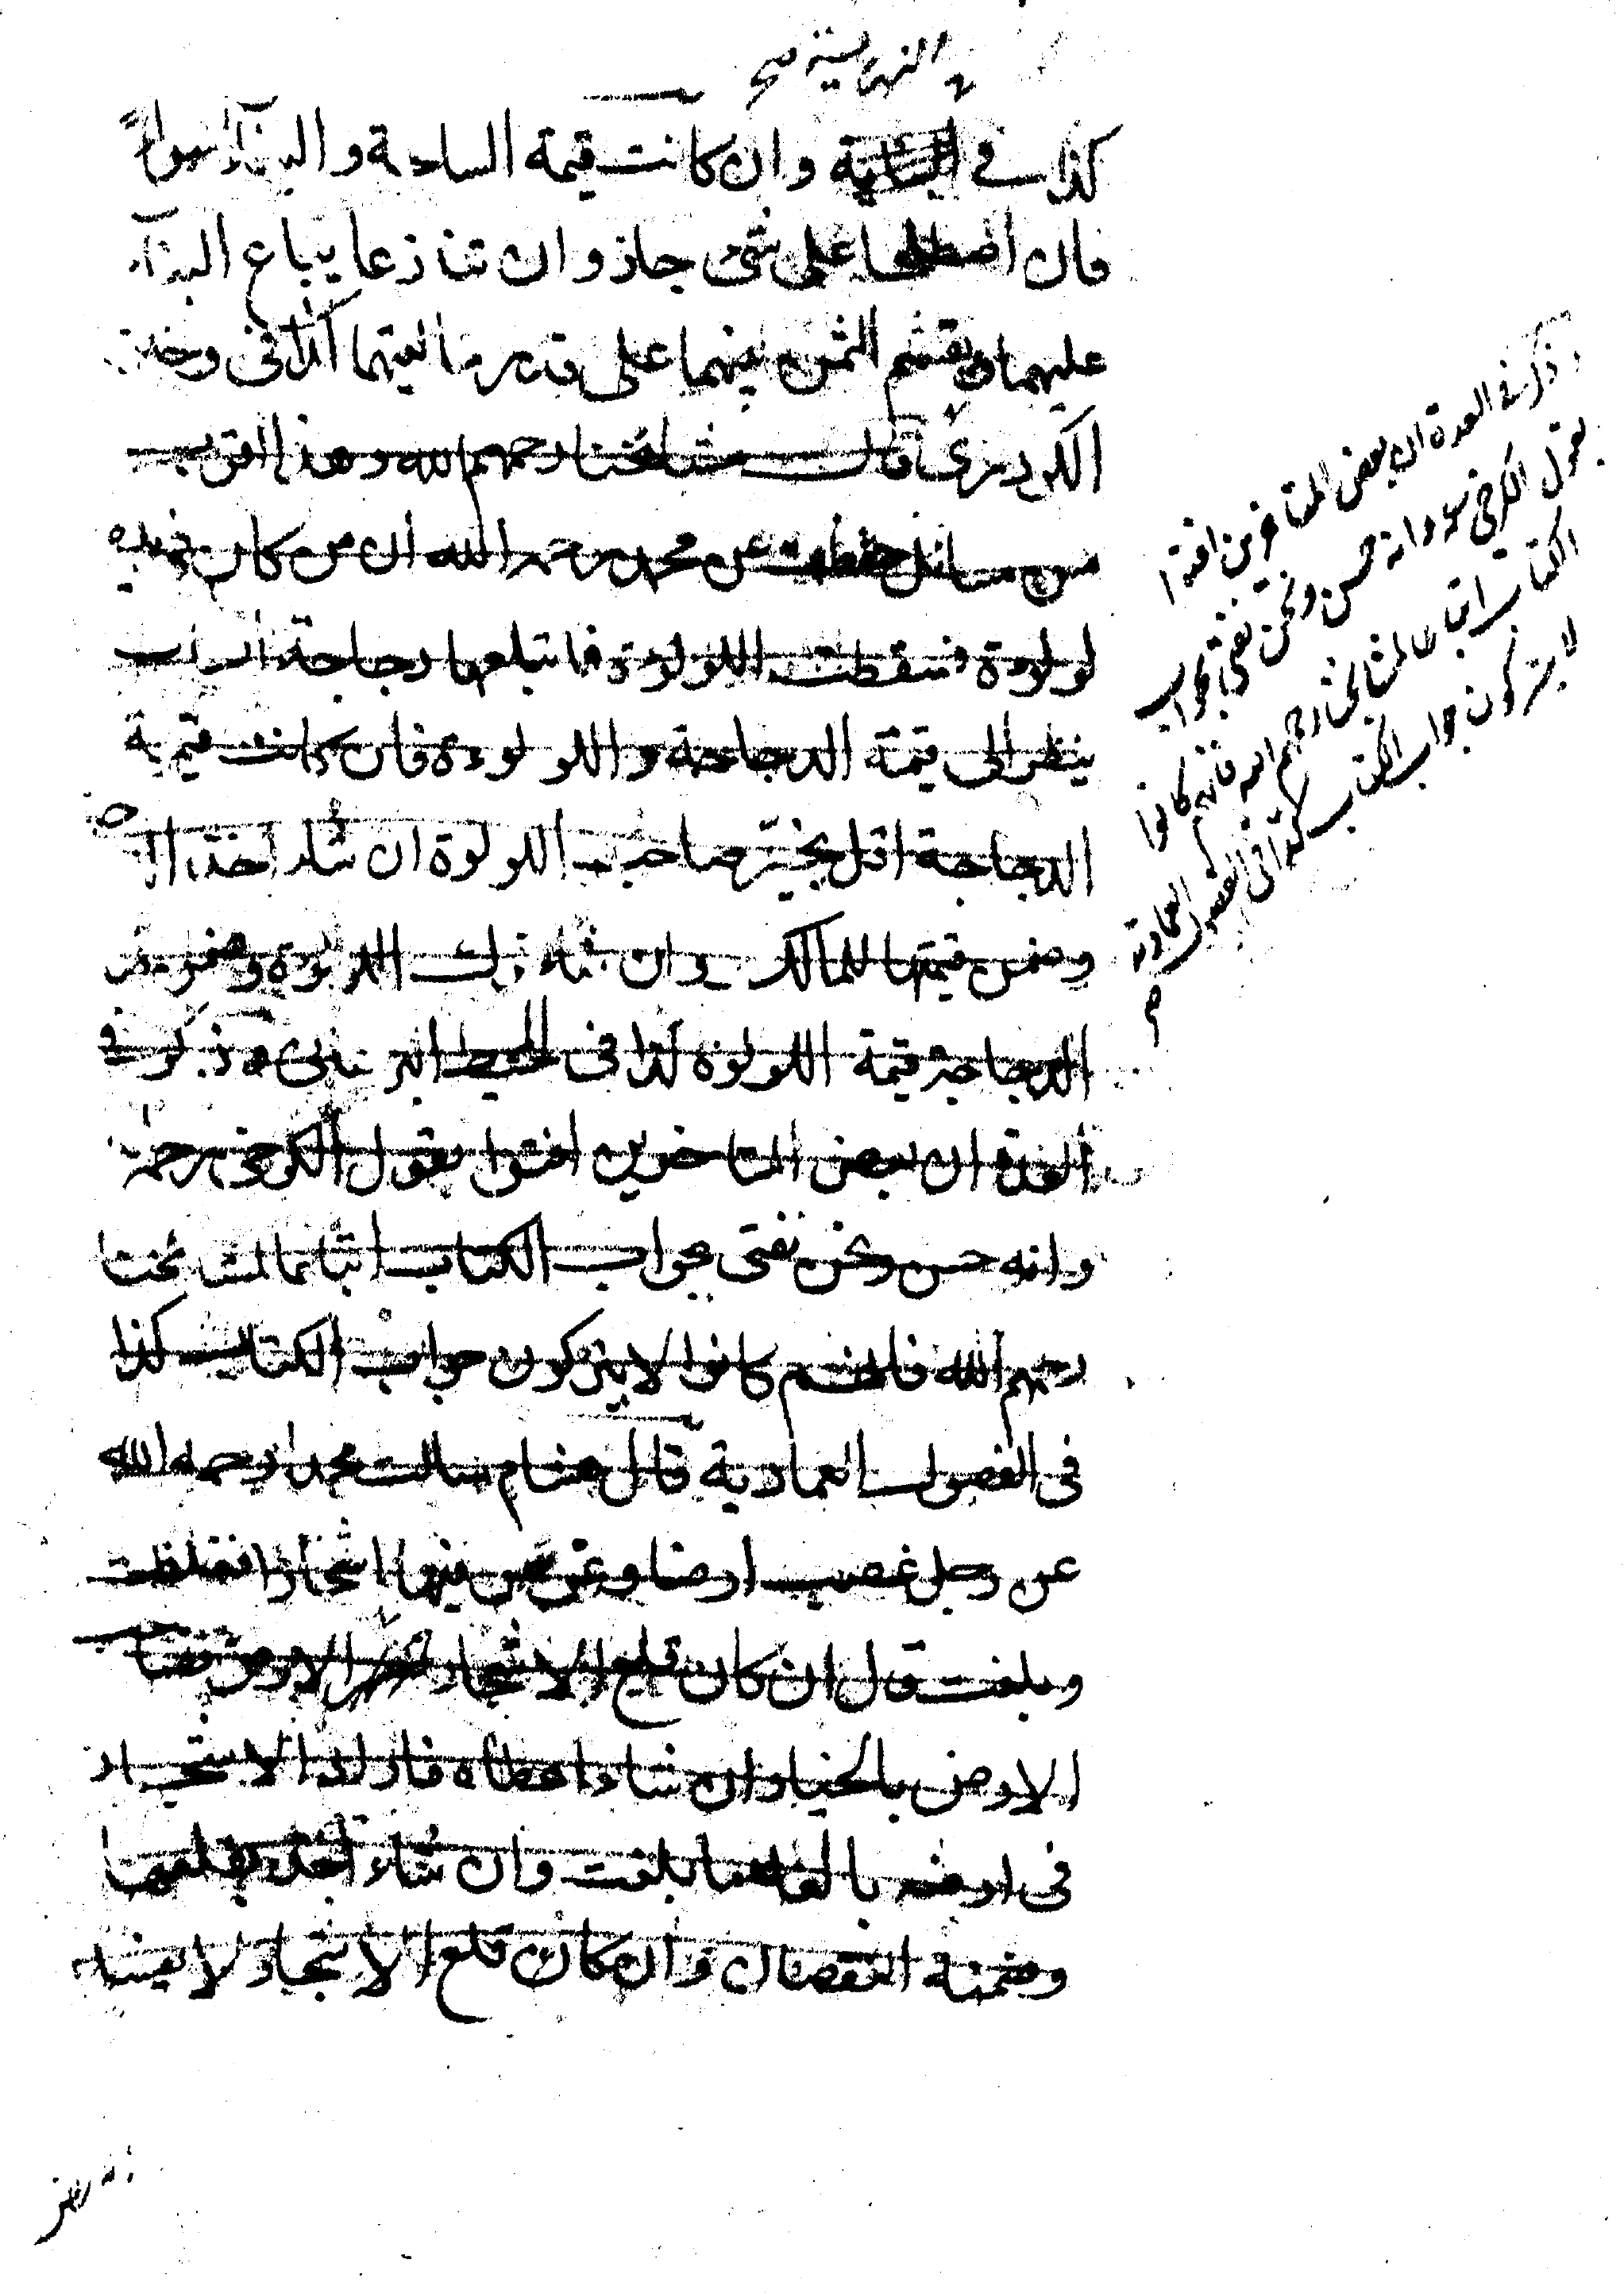 في النهاية صح
كذا في وان كانت قيمة الساحة والبناء سواء
فان اصطلحا على شئ جاز وان تنازعا يباع البناء
عليهما ويقسم الثمن بينهما على قدر مالهما كذا في وجيز
الكردري قال مشائخنا رحمهم الله وهذا اقرب
من مسائل حفظت عن محمد رحمه الله ان من كان في يده
لولوة فسقطت اللولوة فابتلعها دجاجة انسان
ينظر الى قيمة الدجاجة واللولوءة فان كانت قيمة
الدجاجة اقل يخير صاحب اللولوة ان شاء اخذ
وضمن قيمتها للمالك وان شاء ترك اللولوة وضمن
الدجاجة قيمة اللولوة كذا في المحيط وذكر في
العدة ان بعض المتاخرين افتوا بقول الكرخي رحمه
وانه حسن ونحن نفتي بجواب الكتاب اتباعا لمشائخنا
رحمهم الله فانهم كانوا لا يتركون جواب الكتاب كذا
في الفصول العمادية قال هشام سالت محمدا رحمه الله
عن رجل غصب ارضا وغرس فيها اشجارا فغلظت
وبلغت قال ان كان قلع الاشجار الارض فصاحب
الارض بالخيار ان شاء اعطاه الاشجار
في ارضه بالغا ما بلغت وان شاء اخذ بقلعها
وضمنه النقصان وان كان قلع الاشجار لا يفسد
وذكر في العدة ان بعض المتاخرين افتوا
بقول الكرخي وانه حسن ونحن نفتي بجواب
الكتاب اتباعا لمشائخنا رحمهم الله فانهم كانوا
لا يتركون جواب الكتاب كذا في الفصول العمادية